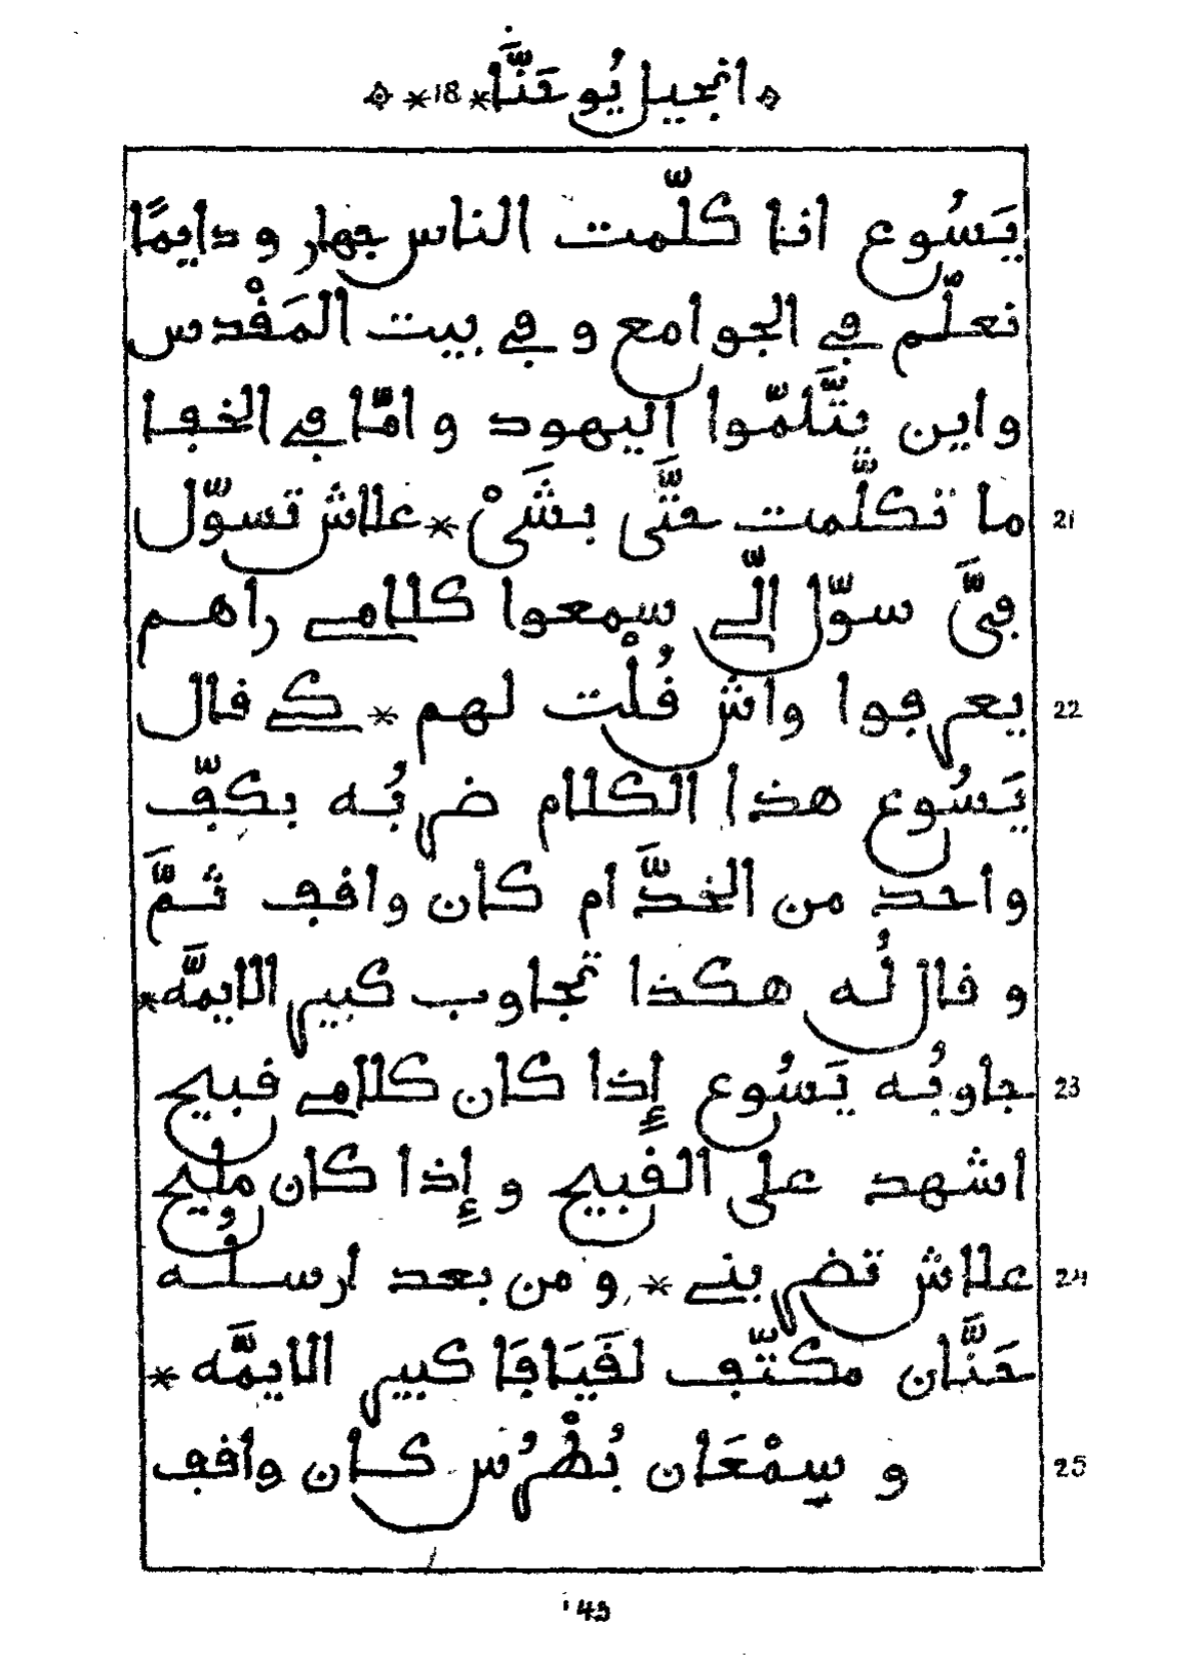 انجيل يُوحَنَّا *18*
يَسُوع انا كلّمت الناس جهار و دايمًا
نعلّم ڢي الجوامع و ڢي بيت المَڧْدس
واين يتَّلمّوا اليهود و امّا ڢي الخڢا
ما تكلَّمت حتَّى بشَيْ * علاش تسوّل 21
ڢيَّ سوّل الّي سمعوا كلامي راهم
يعرڢوا واش ڧُلْت لهم * كي ڧال 22
يَسُوع هذا الكلام ضربُه بكڢّ
واحد من الخدَّام كان واڧڢ ثمَّ
و ڧال لُه هكذا تجاوب كبير الايمَّه *
جاوبُه يَسُوع إذا كان كلامي ڧبيح 23
اشهد على الڧبيح و إذا كان مليح
علاش تضربني * و من بعد ارسلُه 24
حَنَّان مكتّڢ لڧَيَاڢَا كبير الايمَّه *
و سِمْعَان بُطْرُس كان واڧڢ 25
143